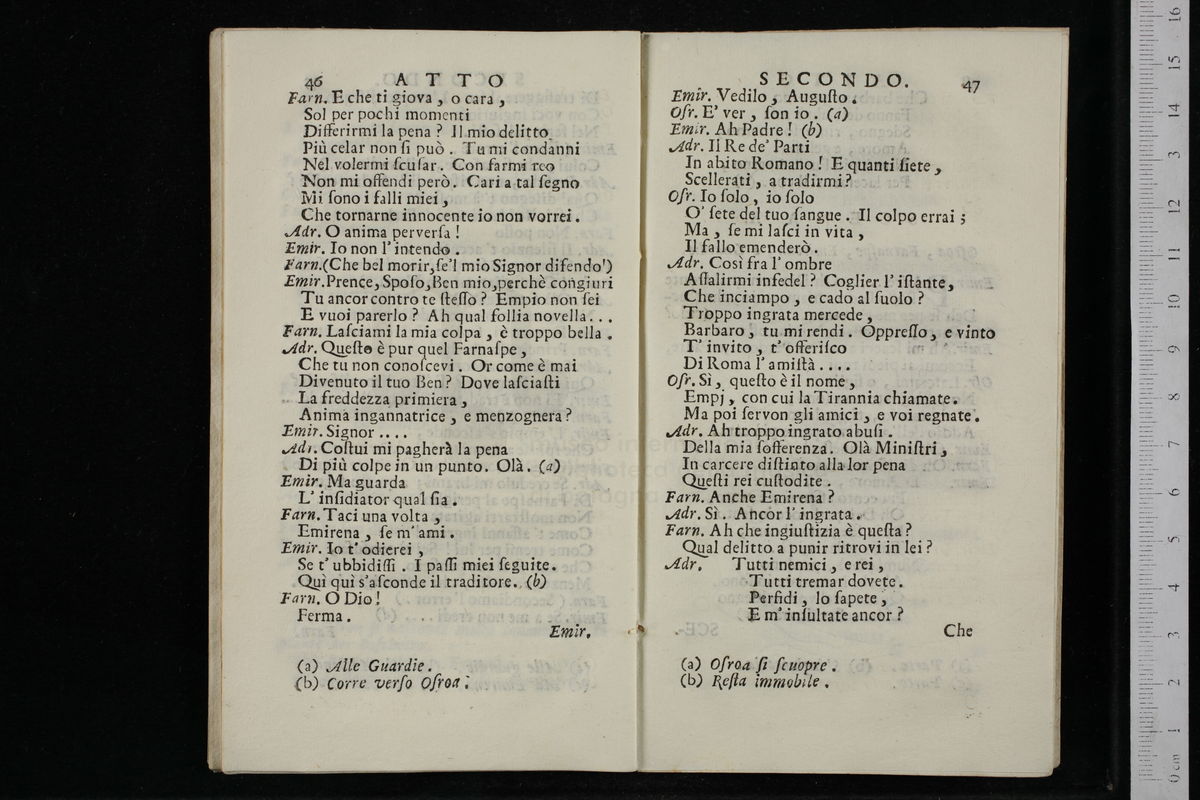 46 ATTO
Farn. E che ti giova , o cara ,
Sol per pochi momenti
Differirmi la pena ? Il mio delitto
Più celar non ſi può . Tu mi condanni
Nel volermi ſcuſar . Con farmi reo
Non mi offendi però . Cari a tal ſegno
Mi ſono i falli miei ,
Che tornarne innocente io non vorrei .
Adr. O anima perverſa !
Emir. Io non l' intendo .
Farn.(Che bel morir,ſe'l mio Signor difendo!)
Emir.Prence, Spoſo,Ben mio,perchè congiuri
Tu ancor contro te ſteſſo ? Empio non ſei
E vuoi parerlo ? Ah qual follia novella . . .
Farn. Laſciami la mia colpa , è troppo bella .
Adr. Queſto è pur quel Farnaſpe ,
Che tu non conoſcevi . Or come è mai
Divenuto il tuo Ben ? Dove laſciaſti
La freddezza primiera ,
Anima ingannatrice , e menzognera ?
Emir. Signor . . . .
Adr. Coſtui mi pagherà la pena
Di più colpe in un punto. Olà. (a)
Emir. Ma guarda
L' inſidiator qual ſia .
Farn. Taci una volta ,
Emirena , ſe m' ami .
Emir. Io t' odierei ,
Se t' ubbidiſſi . I paſſi miei ſeguite.
Quì quì s'aſconde il traditore. (b)
Farn. O Dio !
Ferma .
Emir.
(a) Alle Guardie .
(b) Corre verſo Oſroa .
SECONDO. 47
Emir. Vedilo , Auguſto .
Oſr. E' ver , ſon io . (a)
Emir. Ah Padre ! (b)
Adr. Il Re de' Parti
In abito Romano ! E quanti ſiete ,
Scellerati , a tradirmi ?
Oſr. Io ſolo , io ſolo
O' ſete del tuo ſangue . Il colpo errai ;
Ma , ſe mi laſci in vita ,
Il fallo emenderò .
Adr. Così fra l' ombre
Aſſalirmi infedel ? Coglier l' iſtante,
Che inciampo , e cado al ſuolo ?
Troppo ingrata mercede ,
Barbaro , tu mi rendi . Oppreſſo, e vinto
T' invito , t' offeriſco
Di Roma l' amiſtà . . . .
Oſr. Sì , queſto è il nome ,
Empj , con cui la Tirannia chiamate.
Ma poi ſervon gli amici , e voi regnate.
Adr. Ah troppo ingrato abuſi .
Della mia ſofferenza. Olà Miniſtri ,
In carcere diſtinto alla lor pena
Queſti rei cuſtodite .
Farn. Anche Emirena ?
Adr. Sì . Ancor l' ingrata .
Farn. Ah che ingiuſtizia è queſta ?
Qual delitto a punir ritrovi in lei ?
Adr. Tutti nemici , e rei ,
Tutti tremar dovete .
Perfidi , lo ſapete ,
E m' inſultate ancor ?
Che
(a) Oſroa ſi ſcuopre .
(b) Reſta immobile .
0 cm 1 2 3 4 5 6 7 8 9 10 11 12 13 14 15 16